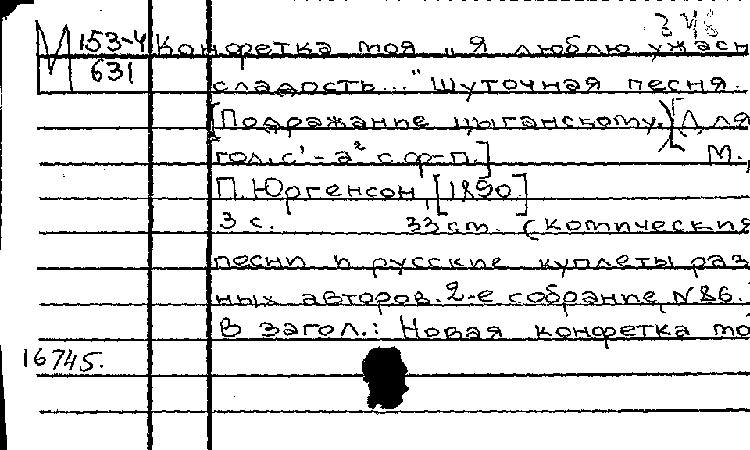 348
М 153-4 Конфетка моя „Я люблю ужасн
631 сладость..." Шуточная песня.
[Подражание цыганскому.) [Для
гол. c¹-a² с ф-п.] М.,
П. Юргенсон, [1890]
3 с. 33 см. (Комические
песни и русские куплеты раз
ных авторов. 2-е собрание, N 86.
В загол.: Новая конфетка мо
16745.